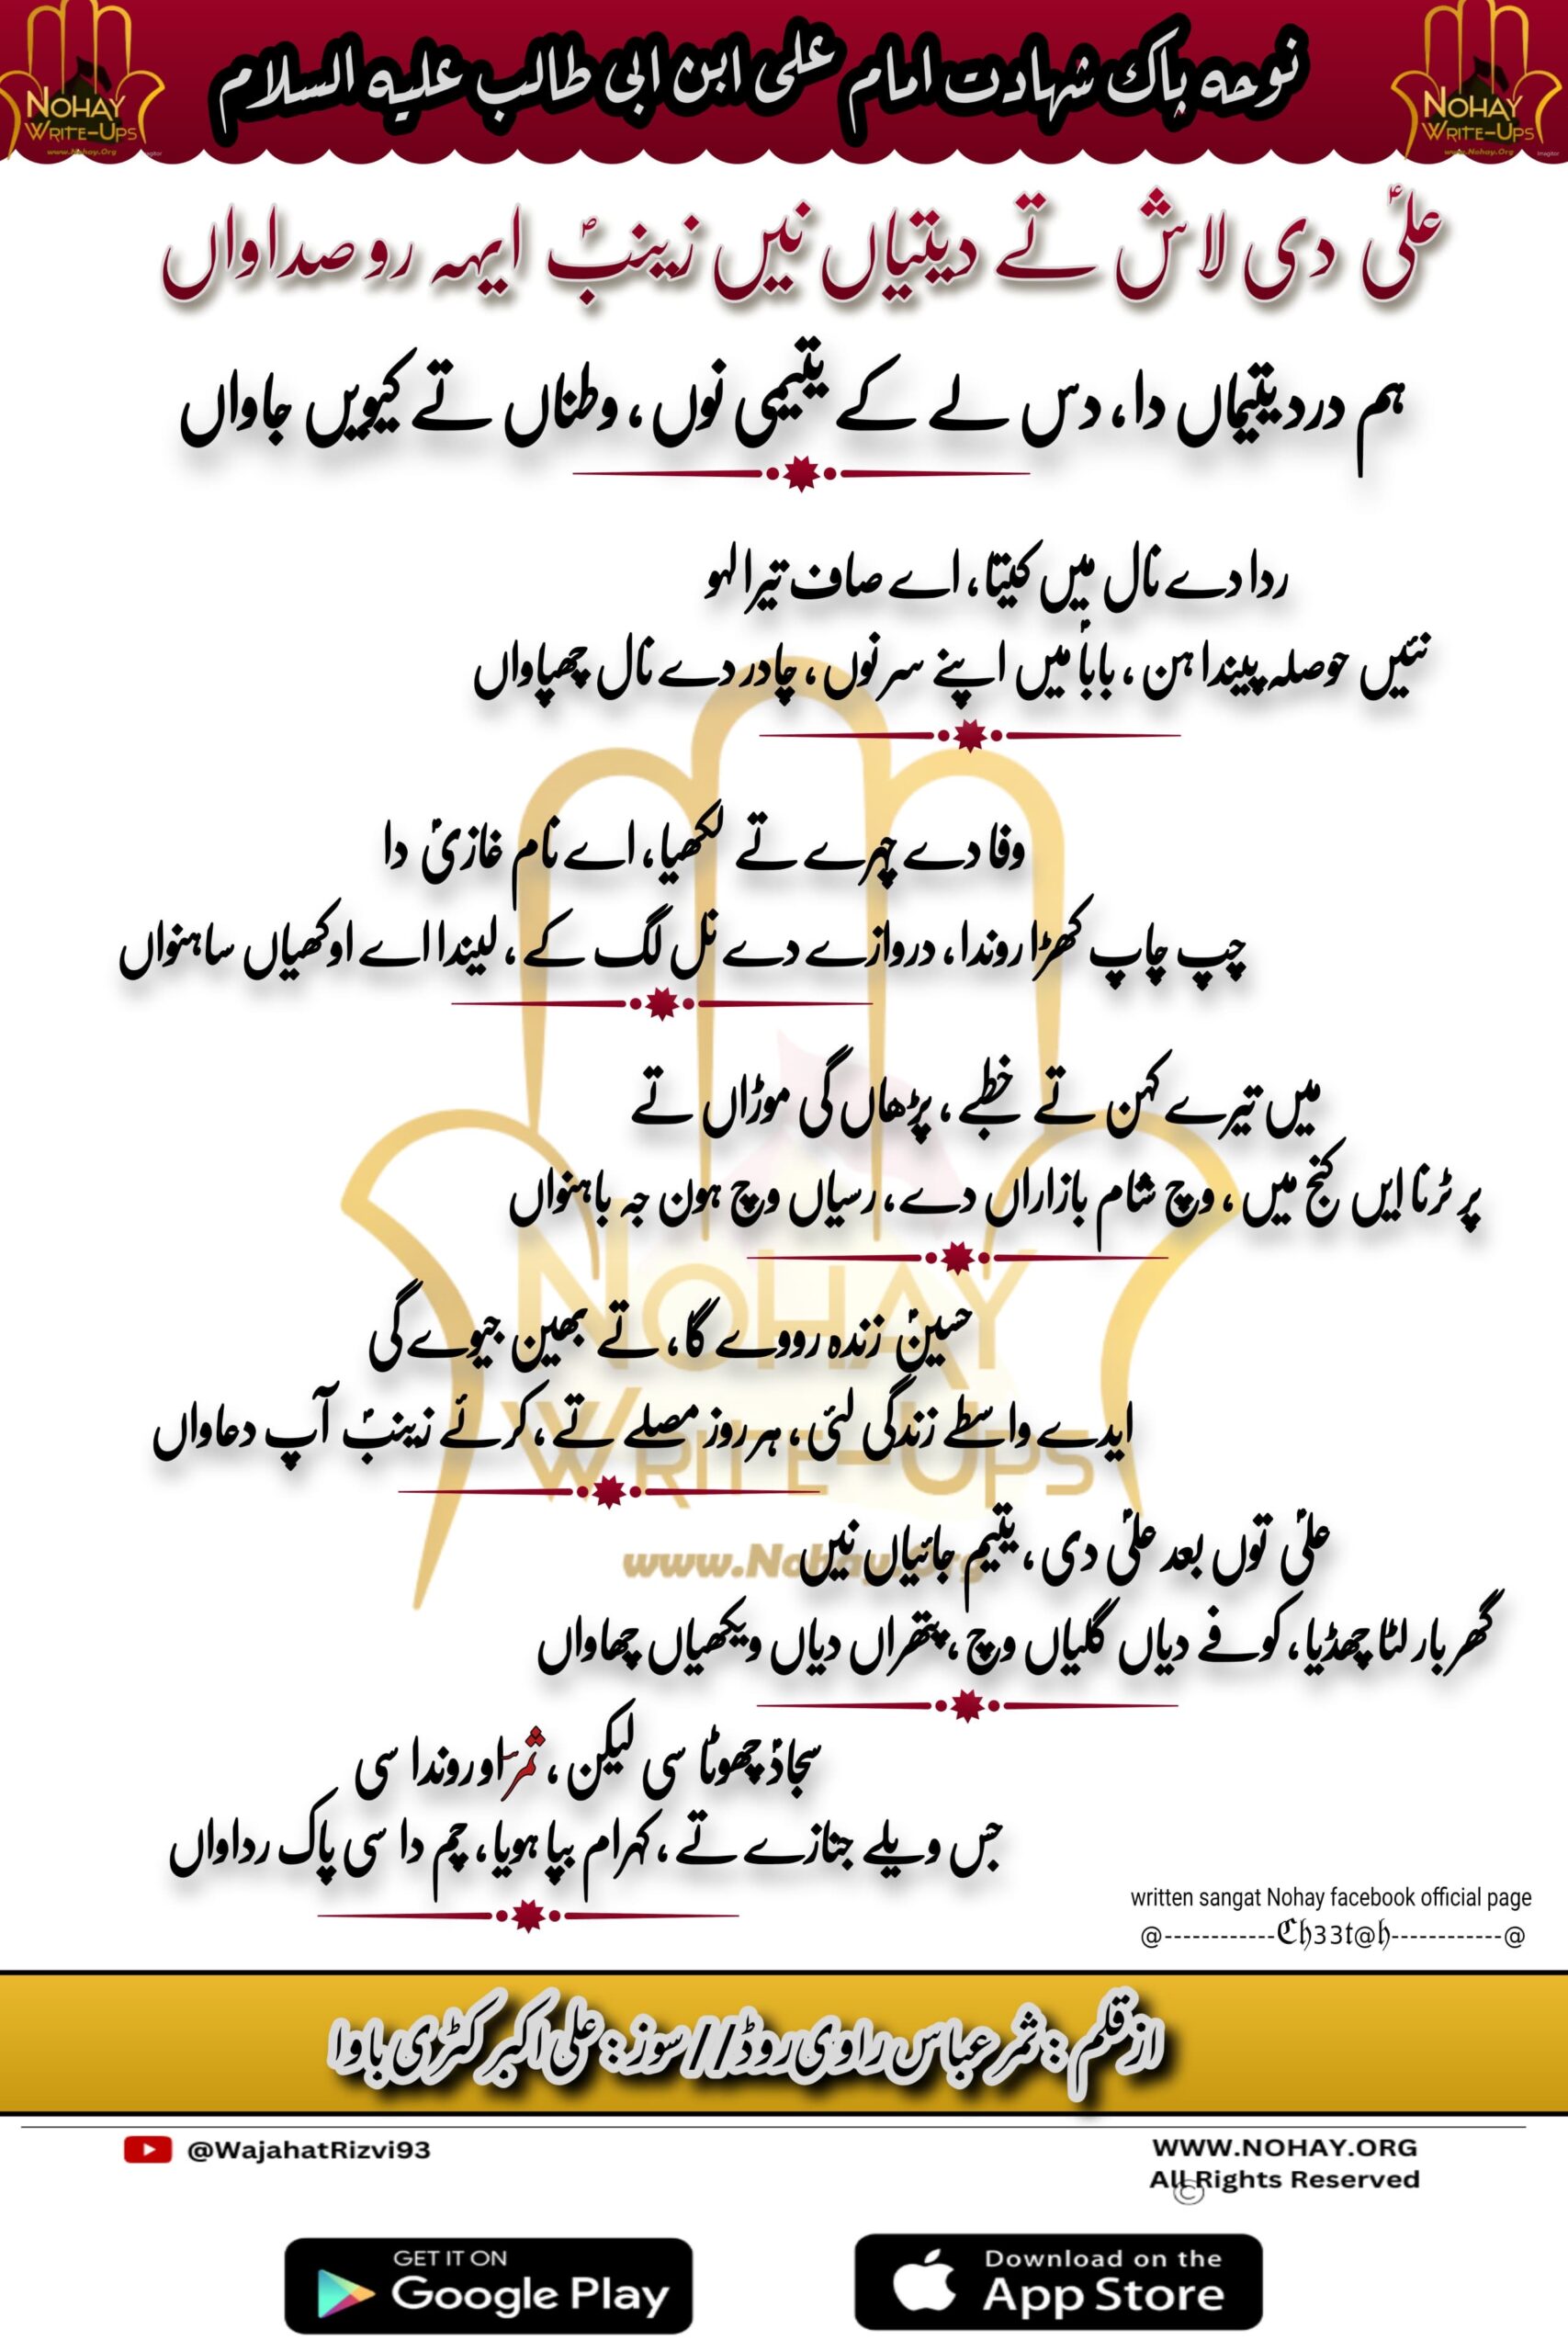 نوحہ پاک شہادت امام علی ابن ابی طالب علیہ السلام
NOHAY
WRITE-UPS
www.Nohay.Org
NOHAY
WRITE-UPS
www.Nohay.Org
علیؑ دی لاش تے دیتیاں نیں زینبؑ ایہہ رو صداواں
ہم درد یتیماں دا، دس لے کے یتیمی نوں، وطناں تے کیویں جاواں
ردا دے نال میں کیتا، اے صاف تیرا لہو
نئیں حوصلہ پیندا ہن، باباؑ میں اپنے سر نوں، چادر دے نال چھپاواں
وفا دے چہرے تے لکھیا، اے نام غازیؑ دا
چپ چاپ کھڑا روندا، دروازے دے نل لگ کے، لیندا اے اوکھیاں ساہنواں
میں تیرے کہن تے خطبے، پڑھاں گی موڑاں تے
پر ٹرنا ایں کنج میں، وچ شام بازاراں دے، رسیاں وچ ہون جہ باہنواں
حسینؑ زندہ رووے گا، تے بھین جیوے گی
ایدے واسطے زندگی لئی، ہر روز مصلے تے، کرئے زینبؑ آپ دعاواں
NOHAY
WRITE-UPS
www.Nohay.Org
علیؑ توں بعد علیؑ دی، یتیم جائیاں نیں
گھر بار لٹا چھڈیا، کوفے دیاں گلیاں وچ، پتھراں دیاں ویکھیاں چھاواں
سجادؑ چھوٹا سی لیکن، ثمرؔ او روندا سی
جس ویلے جنازے تے، کہرام بپا ہویا، چم دا سی پاک رداواں
written sangat Nohay facebook official page
@------------Ch33t@h------------@
از قلم : ثمر عباس راوی روڈ // سوز : علی اکبر کٹڑی باوا
@WajahatRizvi93
WWW.NOHAY.ORG
All Rights Reserved
©
GET IT ON
Google Play
Download on the
App Store